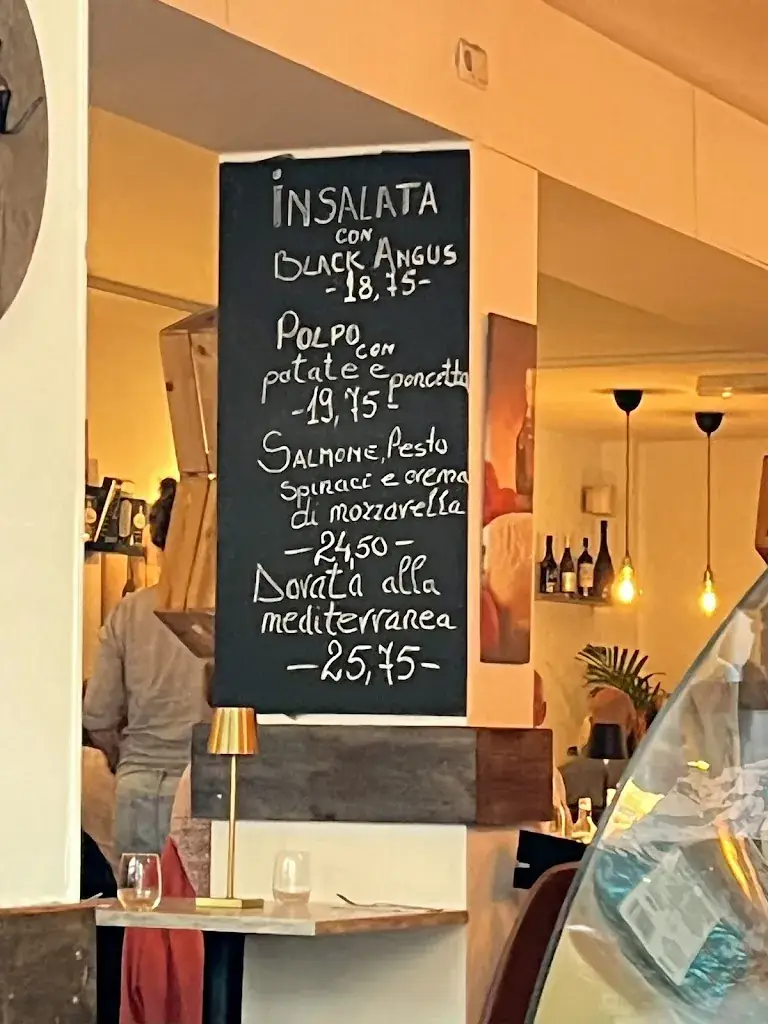 INSALATA
CON
BLACK ANGUS
- 18,75 -
POLPO CON
patate e poncetta
- 19,75 -
SALMONE, Pesto
spinaci e crema
di mozzarella
- 24,50 -
Dorata alla
mediterranea
- 25,75 -